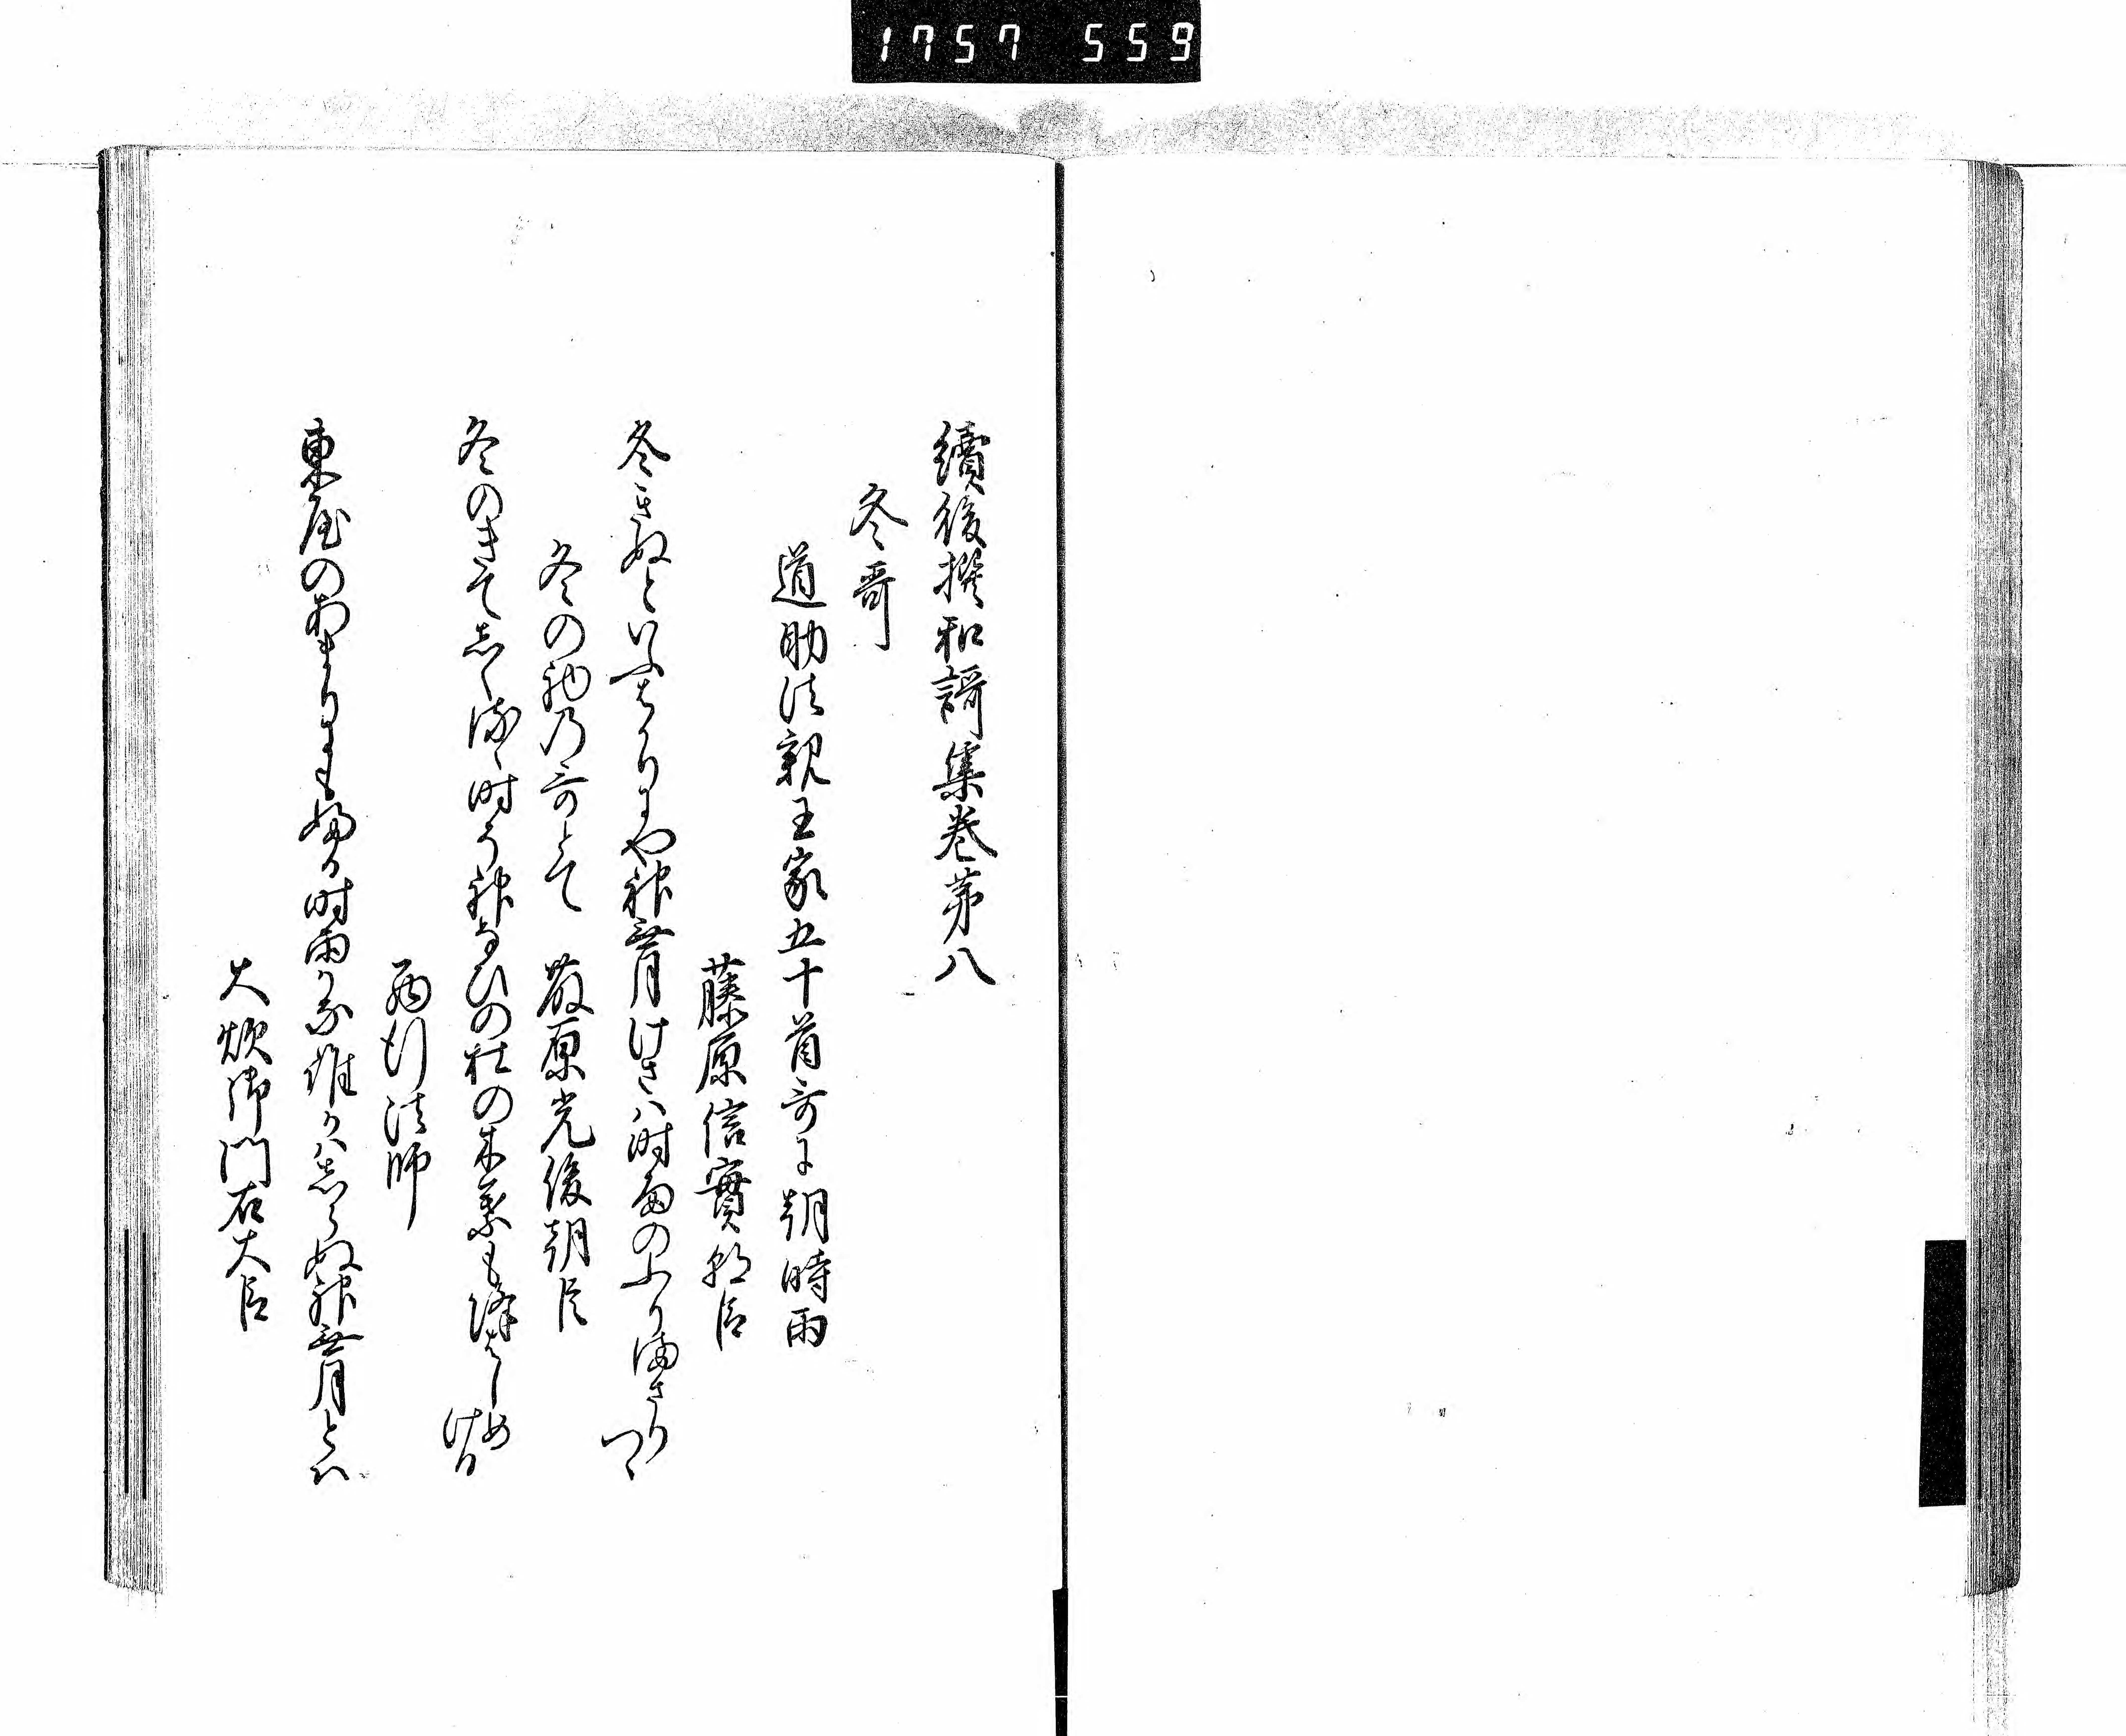 1757 559
續後撰和謌集巻第八
冬哥
道助法親王家五十首哥に朝時雨
藤原信實朝臣
冬きぬといふはかりにや神無月けさは時雨のふりまさりつゝ
冬のはしめの哥とて 藤原光俊朝臣
冬のきてしくるゝ時そ神なひの杜の木葉も降はしめける
西行法師
東屋のあまりにもふる時雨かな誰かはしらぬ神無月とは
大炊御門右大臣